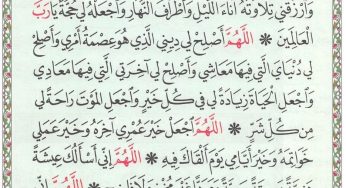 وَارْزُقْنِي تِلَاوَتَهُ آنَاءَ اللَّيْلِ وَأَطْرَافَ النَّهَارِ وَاجْعَلْهُ لِي حُجَّةً يَا رَبَّ
الْعَالَمِينَ * اللَّهُمَّ أَصْلِحْ لِي دِينِي الَّذِي هُوَ عِصْمَةُ أَمْرِي وَأَصْلِحْ
لِي دُنْيَايَ الَّتِي فِيهَا مَعَاشِي وَأَصْلِحْ لِي آخِرَتِي الَّتِي فِيهَا مَعَادِي
وَاجْعَلِ الْحَيَاةَ زِيَادَةً لِي فِي كُلِّ خَيْرٍ وَاجْعَلِ الْمَوْتَ رَاحَةً لِي
مِنْ كُلِّ شَرٍّ * اللَّهُمَّ اجْعَلْ خَيْرَ عُمْرِي آخِرَهُ وَخَيْرَ عَمَلِي
خَوَاتِمَهُ وَخَيْرَ أَيَّامِي يَوْمَ أَلْقَاكَ فِيهِ * اللَّهُمَّ إِنِّي أَسْأَلُكَ عِيشَةً